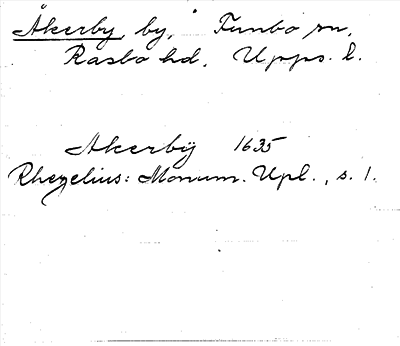 Åkerby, by, Funbo sn,
Rasbo hd, Upps. l.
Akerbÿ 1635
Rhezelius: Monum. Upl., s. 1.